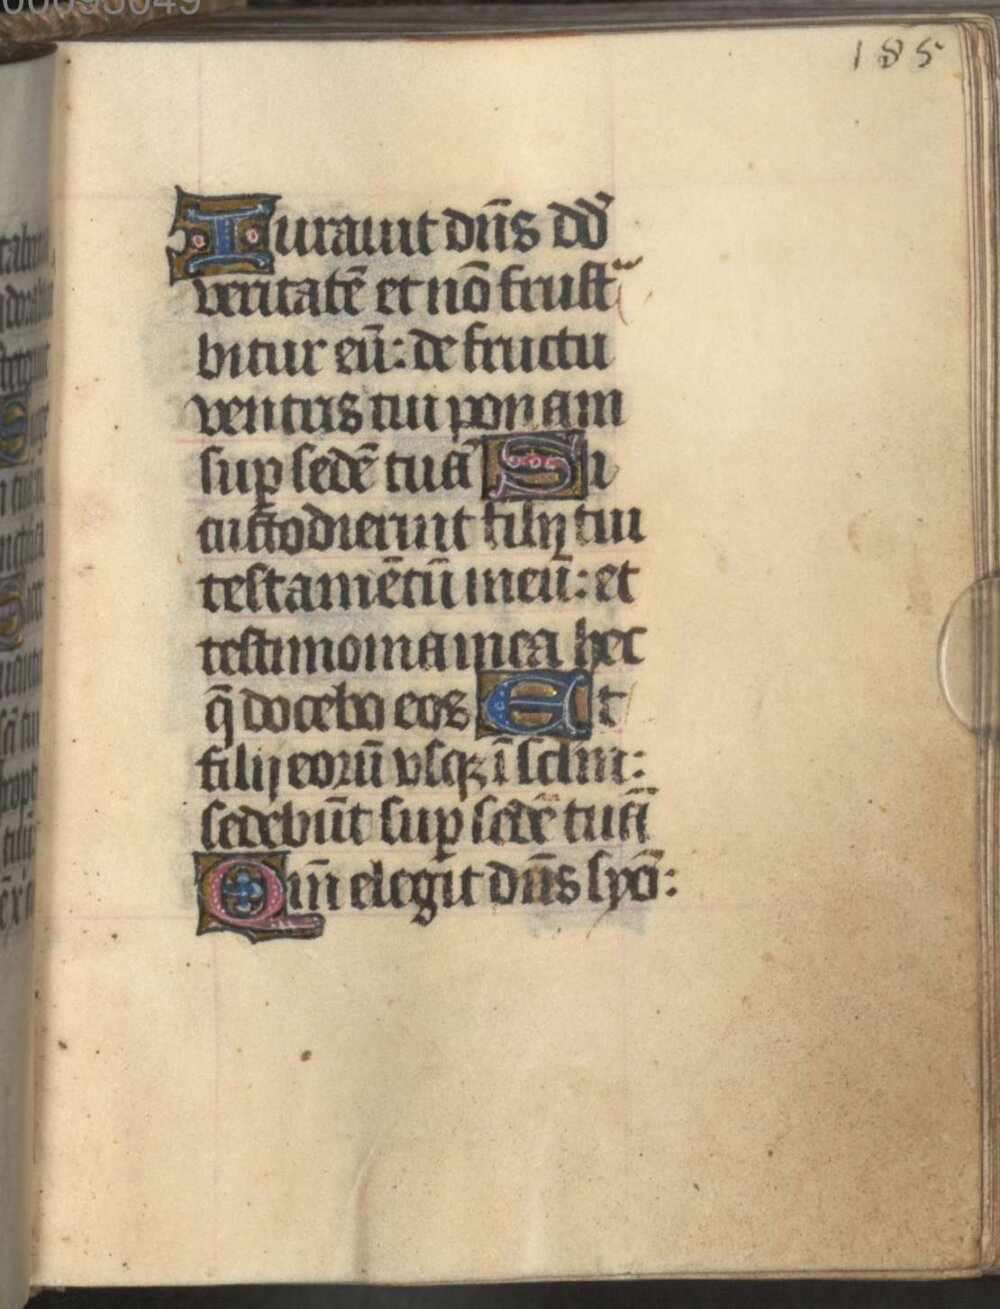 00095049
185
Iurauit dn̄s dd̄
veritatē et nō frustᵃ
bitur eū: de fructu
ventris tui ponam
suꝑ sedē tuā Si
custodierint filij tui
testamētū meū: et
testimonia mea hec
q̄ docebo eos Et
filij eorū vsqꝫ ī sc̄lm:
sedebūt suꝑ sedē tuā
Qm̄ elegit dn̄s syō: